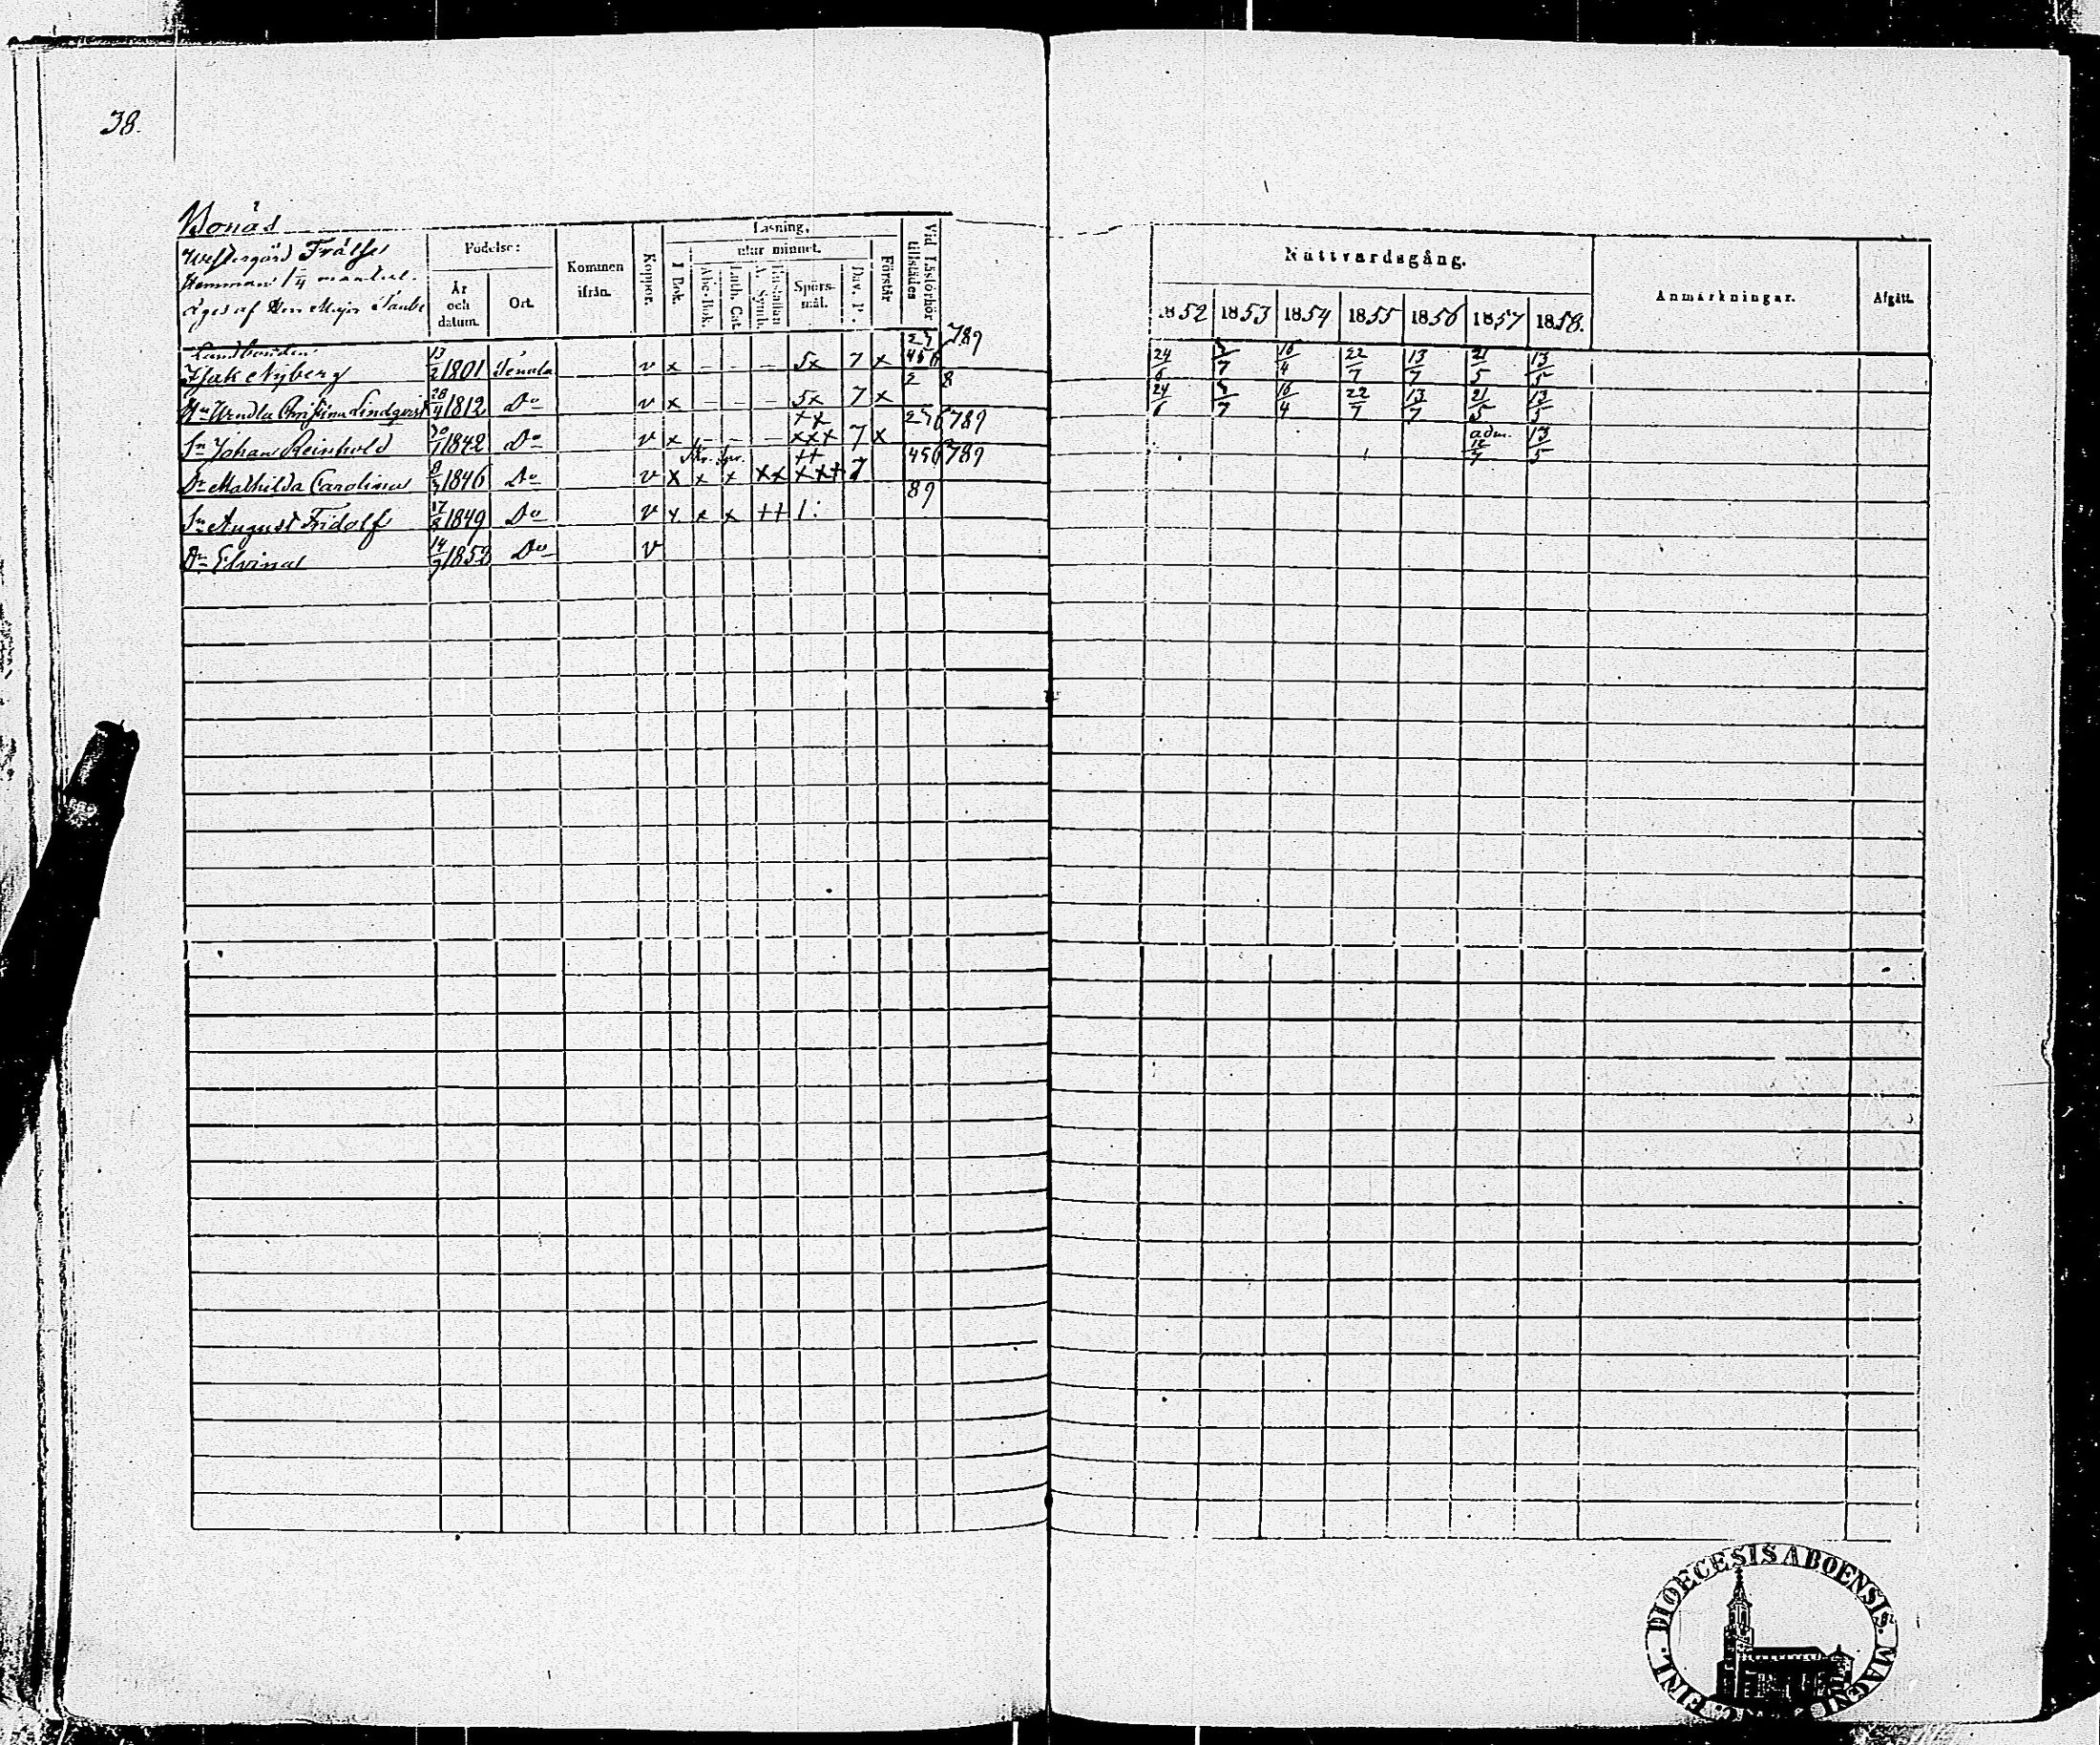 38.
Bonäs
Westergård Frälse
Hemman 1/4 mantal.
äges af Herr Major Taube
Födelse:
År och datum.
Ort.
Kommen ifrån.
Koppor.
Läsning,
I Bok.
utur minnet.
Abc-Bok.
Luth. Cat.
Hustaflan A. Symb.
Spörsmål.
Dav. P.
Förstår
Vid Läsförhör tillstädes
Nattvardsgång.
1852 1853 1854 1855 1856 1857 1858.
Anmärkningar.
Afgått.
Landbonden
Isak Nyberg 13/2 1801 Tenala v x - - - 5x 7 x 456 789 24/6 5/7 16/4 22/7 13/7 21/5 13/5
Hu Wendla Christina Lindqvist 28/4 1812 Do v x - - - 5x 7 x 2 8 24/6 5/7 16/4 22/7 13/7 21/5 13/5
Sn Johan Reinhold 30/1 1842 Do v x - - - xx xxx 7 x 6789 adm. 12/7 13/5
Dr Mathilda Carolina 8/7 1846 Do v x x x xx ++ xx+ 7 456789
Sn August Fridolf 17/8 1849 Do v x x x ++ 1: 89
Dr Elvina 14/7 1853 Do v
FINL. DIOECESIS ABOENSIS. MAGNI